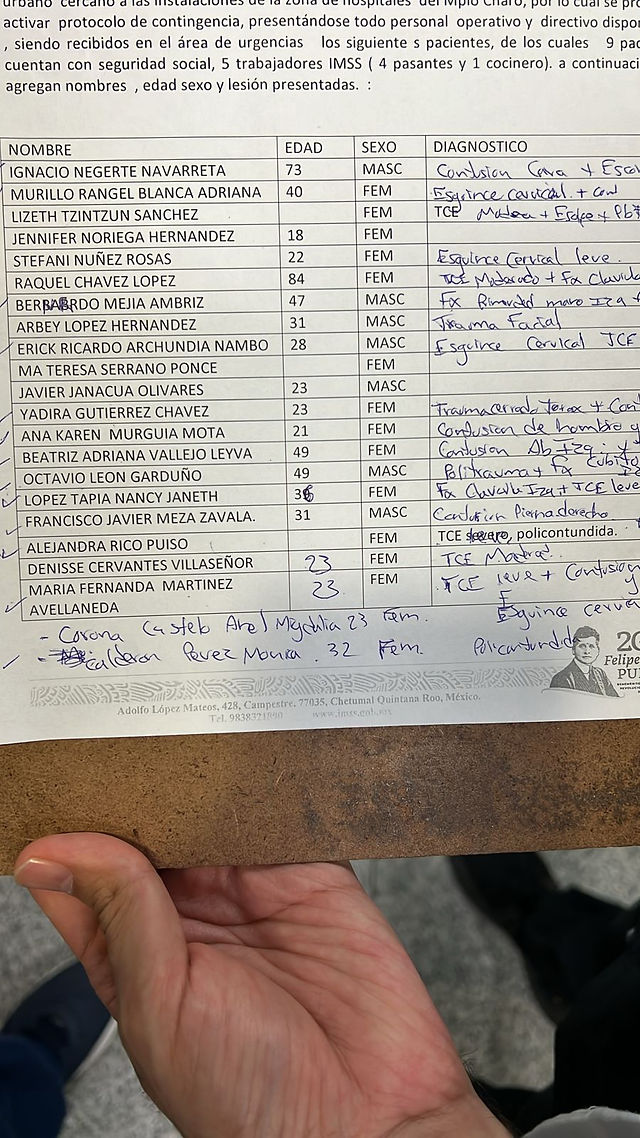 urbano cercano a las instalaciones de la zona de hospitales del Mpio Charo, por lo cual se
activar protocolo de contingencia, presentándose todo personal operativo y directivo
, siendo recibidos en el área de urgencias los siguiente s pacientes, de los cuales 9
cuentan con seguridad social, 5 trabajadores IMSS ( 4 pasantes y 1 cocinero). a
agregan nombres , edad sexo y lesión presentadas. :
NOMBRE EDAD SEXO DIAGNOSTICO
IGNACIO NEGERTE NAVARRETA 73 MASC Contusion Cara +
MURILLO RANGEL BLANCA ADRIANA 40 FEM Esguince cervical. +
LIZETH TZINTZUN SANCHEZ FEM TCE
JENNIFER NORIEGA HERNANDEZ 18 FEM
STEFANI NUÑEZ ROSAS 22 FEM Esguince Cervical leve.
RAQUEL CHAVEZ LOPEZ 84 FEM TCE Moderado + Fx
MEJIA AMBRIZ 47 MASC Fx mano Izq
ARBEY LOPEZ HERNANDEZ 31 MASC Trauma Facial
ERICK RICARDO ARCHUNDIA NAMBO 28 MASC Esguince Cervical TCE
MA TERESA SERRANO PONCE FEM
JAVIER JANACUA OLIVARES 23 MASC
YADIRA GUTIERREZ CHAVEZ 23 FEM Torax +
ANA KAREN MURGUIA MOTA 21 FEM Contusion de hombro y
BEATRIZ ADRIANA VALLEJO LEYVA 49 FEM Contusion Ab Izq. y
OCTAVIO LEON GARDUÑO 49 MASC Politrauma + Fx Cubito
LOPEZ TAPIA NANCY JANETH 36 FEM Fx Clavicula Izq + TCE leve
FRANCISCO JAVIER MEZA ZAVALA. 31 MASC Contusion Pierna derecha
ALEJANDRA RICO PUISO FEM TCE policontundida.
DENISSE CERVANTES VILLASEÑOR 23 FEM TCE
MARIA FERNANDA MARTINEZ 23 FEM TCE leve + Contusion
AVELLANEDA Esguince
- Corona Migdalia 23 Fem.
- Calderon Perez 32 Fem. Policontundida
20
Felipe
PU
Adolfo López Mateos, 428, Campestre, 77035, Chetumal Quintana Roo, México.
Tel. www.imss.gob.mx